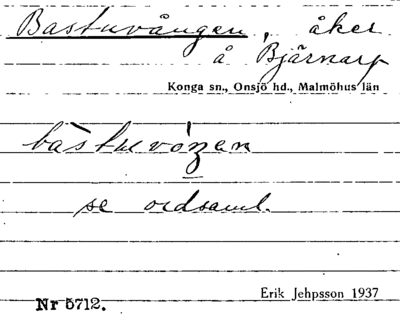 Bastuvången, åker
å Bjärnarp
Konga sn., Onsjö hd., Malmöhus län
bàstuvóŋen
se ordsaml.
Erik Jehpsson 1937
Nr 5712.